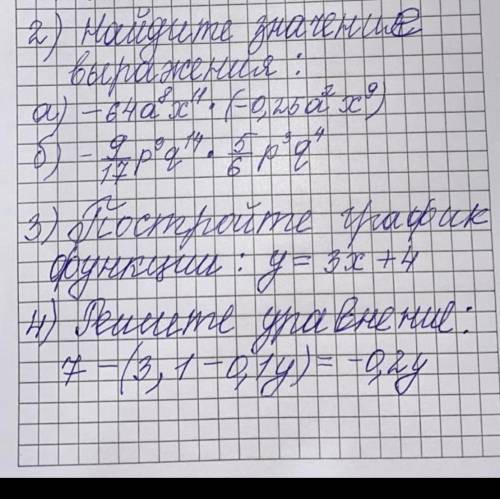 2) Найдите значение
выражения:
а) −64a⁸x¹¹ · (−0,25a²x⁹)
б) −9/17 p⁹q¹⁴ · 5/6 p³q⁴
3) Постройте график
функции: y = 3x + 4
4) Решите уравнение:
7 − (3,1 − 0,1y) = −0,2y